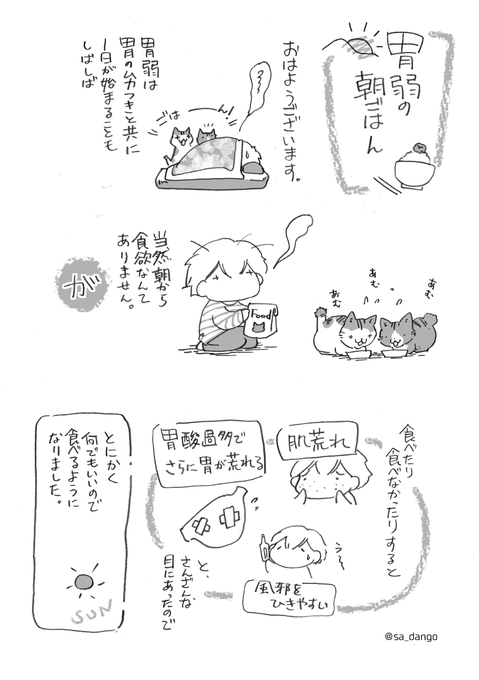 胃弱の
朝ごはん
おはようございます。
ごはーん！
胃弱は
胃のムカつきと共に
1日が始まることも
しばしば
あむ
あむ
あむ
Food
当然朝から
食欲なんて
ありません。
が
食べたり
食べなかったりすると
肌荒れ
胃酸過多で
さらに胃が荒れる
う〜
風邪を
ひきやすい
と、
さんざんな
目にあったので
とにかく
何でもいいので
食べるように
なりました。
SUN
@sa_dango